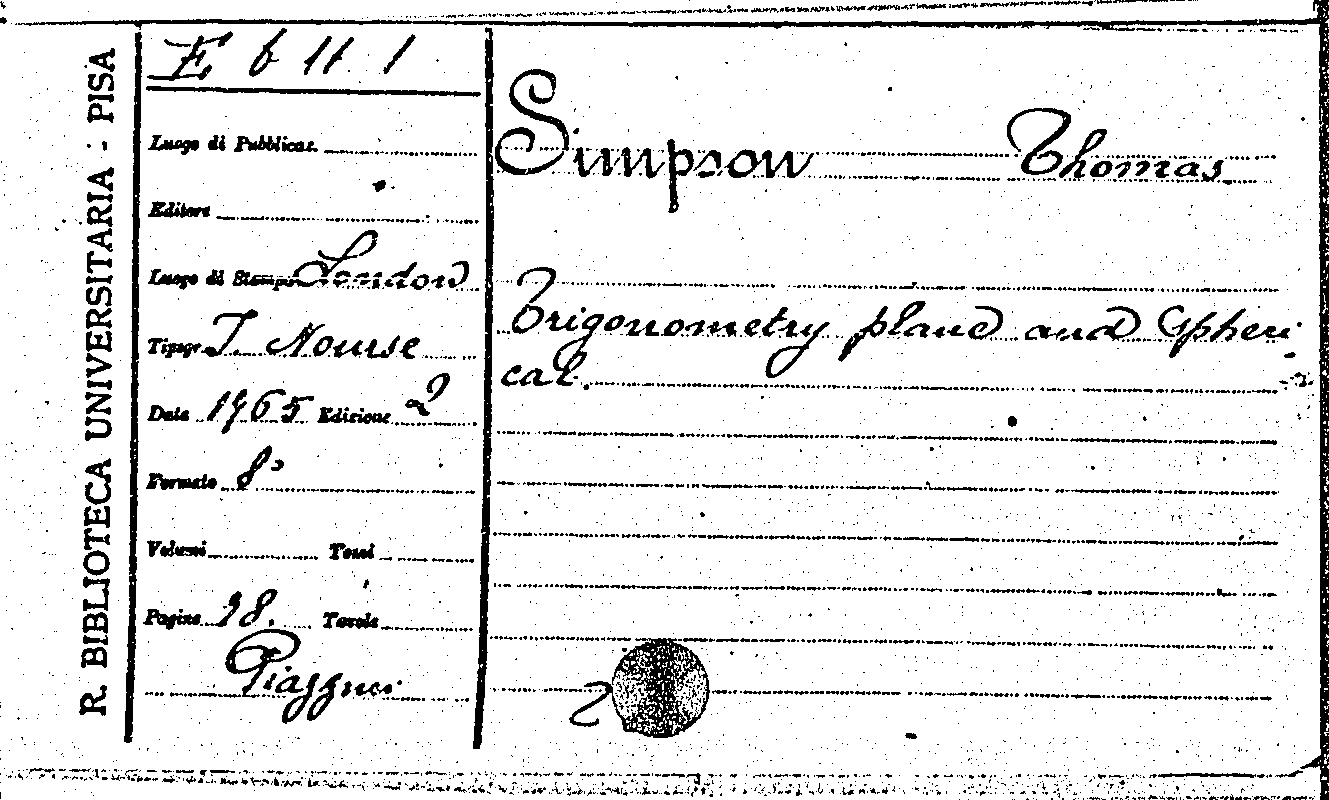 R. BIBLIOTECA UNIVERSITARIA - PISA
E b 11 1
Luogo di Pubblicaz.
Editore
Luogo di Stampa London
Tipogr. J. Nourse
Data 1765 Edizione 2
Formato 8°
Volumi Tomi
Pagine 78. Tavole
Simpson Thomas
Trigonometry plane and Spheri
cal.